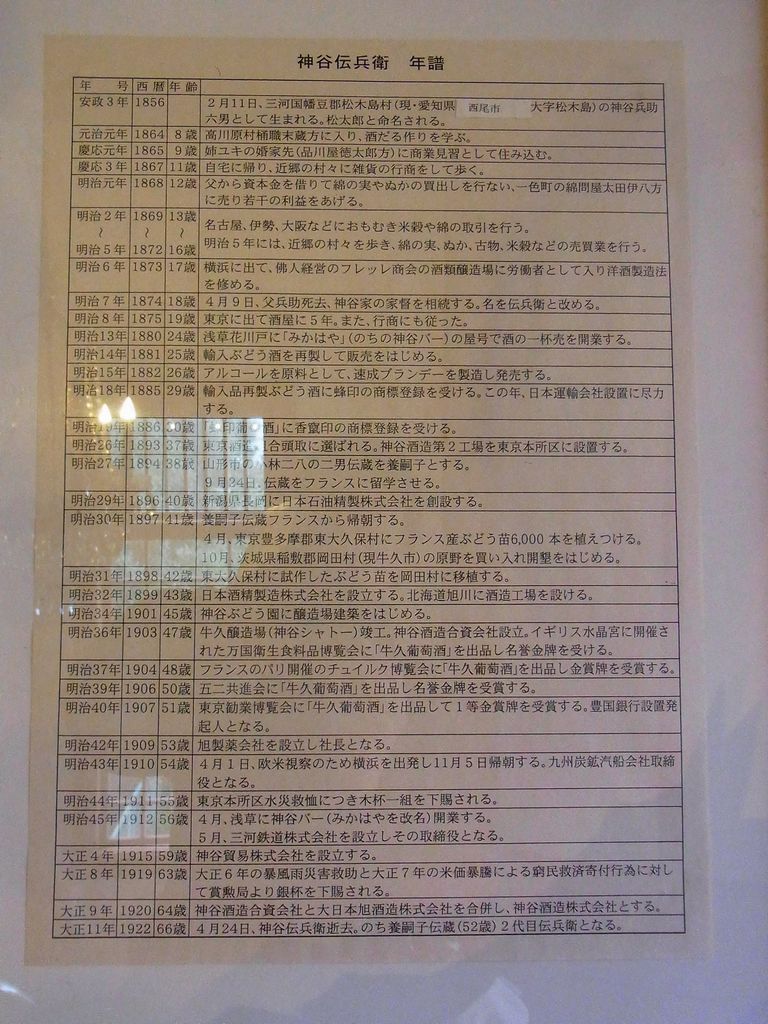 神谷伝兵衛 年譜
年 号 西暦 年齢
安政3年 1856 2月11日、三河国幡豆郡松木島村(現・愛知県 西尾市 大字松木島)の神谷兵助
六男として生まれる。松太郎と命名される。
元治元年 1864 8歳 高川原村桶職末蔵方に入り、酒だる作りを学ぶ。
慶応元年 1865 9歳 姉ユキの婚家先(品川屋徳太郎方)に商業見習として住み込む。
慶応3年 1867 11歳 自宅に帰り、近郷の村々に雑貨の行商をして歩く。
明治元年 1868 12歳 父から資本金を借りて綿の実やぬかの買出しを行ない、一色町の綿問屋太田伊八方
に売り若干の利益をあげる。
明治2年 1869 13歳
~ ~ ~ 名古屋、伊勢、大阪などにおもむき米穀や綿の取引を行う。
明治5年 1872 16歳 明治5年には、近郷の村々を歩き、綿の実、ぬか、古物、米穀などの売買業を行う。
明治6年 1873 17歳 横浜に出て、佛人経営のフレッレ商会の酒類醸造場に労働者として入り洋酒製造法
を修める。
明治7年 1874 18歳 4月9日、父兵助死去、神谷家の家督を相続する。名を伝兵衛と改める。
明治8年 1875 19歳 東京に出て酒屋に5年。また、行商にも従った。
明治13年 1880 24歳 浅草花川戸に「みかはや」(のちの神谷バー)の屋号で酒の一杯売を開業する。
明治14年 1881 25歳 輸入ぶどう酒を再製して販売をはじめる。
明治15年 1882 26歳 アルコールを原料として、速成ブランデーを製造し発売する。
明治18年 1885 29歳 輸入品再製ぶどう酒に蜂印の商標登録を受ける。この年、日本運輸会社設置に尽力
する。
明治19年 1886 30歳 印葡 酒」に香竄印の商標登録を受ける。
明治26年 1893 37歳 東京酒造 合頭取に選ばれる。神谷酒造第2工場を東京本所区に設置する。
明治27年 1894 38歳 山形市の小林二八の二男伝蔵を養嗣子とする。
9月24日、伝蔵をフランスに留学させる。
明治29年 1896 40歳 新潟県長岡に日本石油精製株式会社を創設する。
明治30年 1897 41歳 養嗣子伝蔵フランスから帰朝する。
4月、東京豊多摩郡東大久保村にフランス産ぶどう苗6,000本を植えつける。
10月、茨城県稲敷郡岡田村(現牛久市)の原野を買い入れ開墾をはじめる。
明治31年 1898 42歳 東大久保村に試作したぶどう苗を岡田村に移植する。
明治32年 1899 43歳 日本酒精製造株式会社を設立する。北海道旭川に酒造工場を設ける。
明治34年 1901 45歳 神谷ぶどう園に醸造場建築をはじめる。
明治36年 1903 47歳 牛久醸造場(神谷シャトー)竣工。神谷酒造合資会社設立。イギリス水晶宮に開催さ
れた万国衛生食料品博覧会に「牛久葡萄酒」を出品し名誉金牌を受ける。
明治37年 1904 48歳 フランスのパリ開催のチュイルク博覧会に「牛久葡萄酒」を出品し金賞牌を受賞する。
明治39年 1906 50歳 五二共進会に「牛久葡萄酒」を出品し名誉金牌を受賞する。
明治40年 1907 51歳 東京勧業博覧会に「牛久葡萄酒」を出品して1等金賞牌を受賞する。豊国銀行設置発
起人となる。
明治42年 1909 53歳 旭製薬会社を設立し社長となる。
明治43年 1910 54歳 4月1日、欧米視察のため横浜を出発し11月5日帰朝する。九州炭鉱汽船会社取締
役となる。
明治44年 1911 55歳 東京本所区水災救恤につき木杯一組を下賜される。
明治45年 1912 56歳 4月、浅草に神谷バー(みかはやを改名)開業する。
5月、三河鉄道株式会社を設立しその取締役となる。
大正4年 1915 59歳 神谷貿易株式会社を設立する。
大正8年 1919 63歳 大正6年の暴風雨災害救助と大正7年の米価暴騰による窮民救済寄付行為に対し
て賞勲局より銀杯を下賜される。
大正9年 1920 64歳 神谷酒造合資会社と大日本旭酒造株式会社を合併し、神谷酒造株式会社とする。
大正11年 1922 66歳 4月24日、神谷伝兵衛逝去。のち養嗣子伝蔵(52歳)2代目伝兵衛となる。